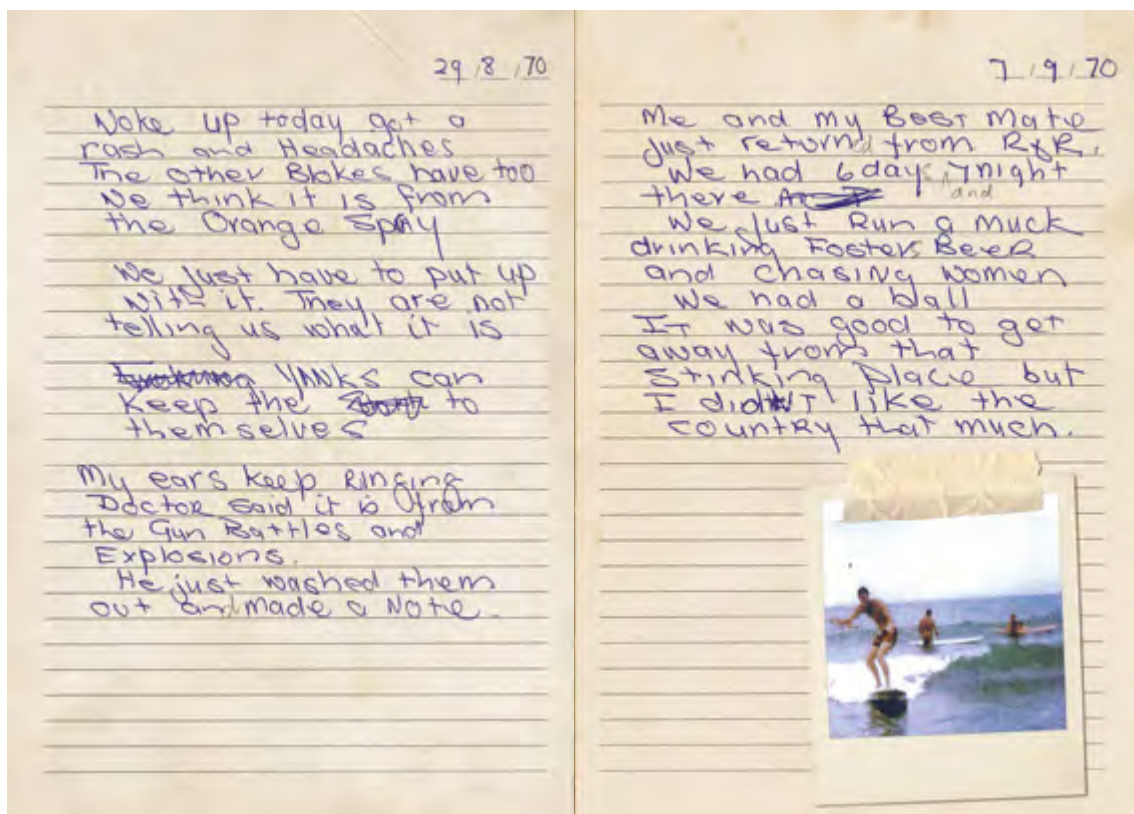 29/8/70
Woke up today got a
rash and Headaches
The other Blokes have too
We think it is from
the Orange Spray
We just have to put up
with it. They are not
telling us what it is
YANKS can
Keep the to
themselves
My ears keep RINGING
Doctor said it is from
the Gun Battles and
Explosions.
He just washed them
out and made a Note.
7/9/70
Me and my Best Mate
just returnd from R&R.
We had 6 days and 7 night
there
We just Run a muck
drinking Fosters Beer
and chasing women
We had a ball
IT was good to get
away from that
Stinking Place but
I didn't like the
country that much.